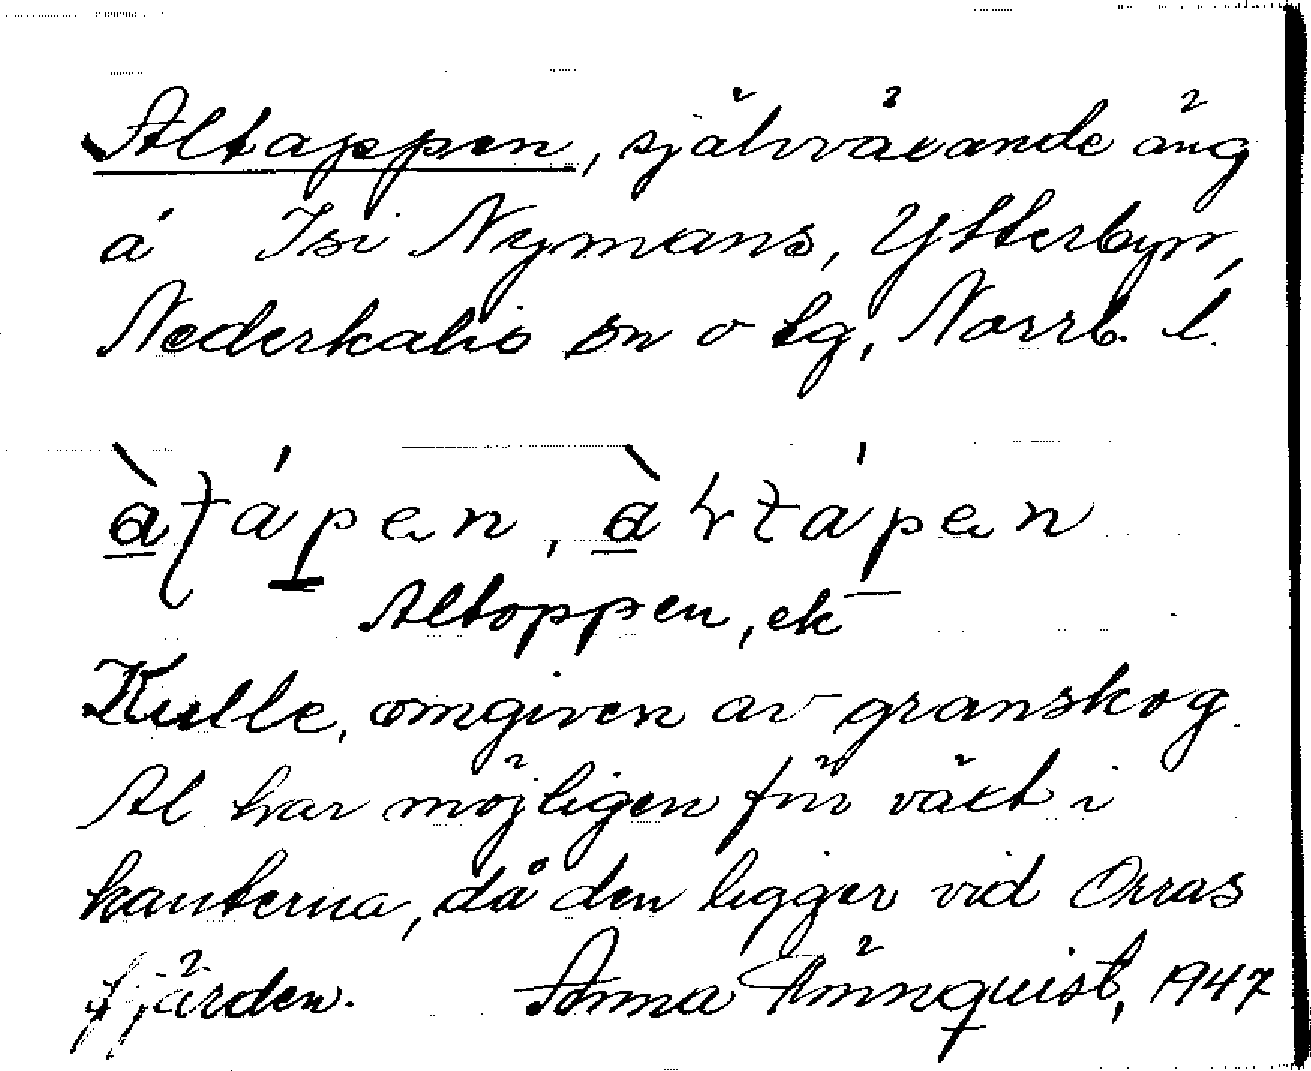 Altappen, självväxande äng
å Isi Nymans, Ytterbyn,
Nederkalix sn o tg, Norrb. l.
Altoppen, ek
Kulle, omgiven av granskog.
Al har möjligen förr växt i
kanterna, då den ligger vid Orras
fjärden. Anna Rönnquist, 1947